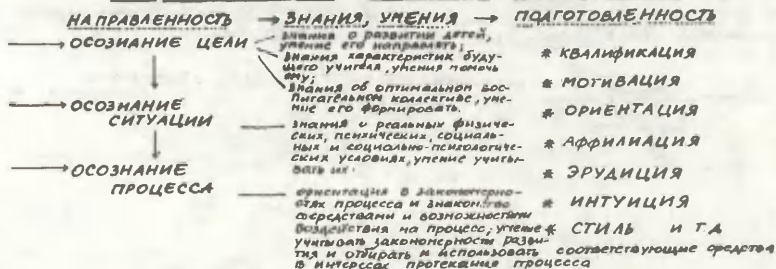 НАПРАВЛЕННОСТЬ → ЗНАНИЯ, УМЕНИЯ → ПОДГОТОВЛЕННОСТЬ
ОСОЗНАНИЕ ЦЕЛИ
знания о развитии детей,
умение его направлять;
знания характеристик буду-
щего учителя, умения помочь
ему;
знания об оптимальном вос-
питательном коллективе, уме-
ние его формировать.
ОСОЗНАНИЕ
СИТУАЦИИ
знания о реальных физичес-
ких, психических, социаль-
ных и социально-психологиче-
ских условиях, умение учиты-
вать их.
ОСОЗНАНИЕ
ПРОЦЕССА
ориентация в закономерно-
стях процесса и знакомство
средствами и возможностями
воздействия на процесс; умение
учитывать закономерности разви-
тия и отбирать и использовать соответствующие средства
в интересах протекания процесса
* КВАЛИФИКАЦИЯ
* МОТИВАЦИЯ
* ОРИЕНТАЦИЯ
* АФФИЛИАЦИЯ
* ЭРУДИЦИЯ
* ИНТУИЦИЯ
* СТИЛЬ И Т.Д